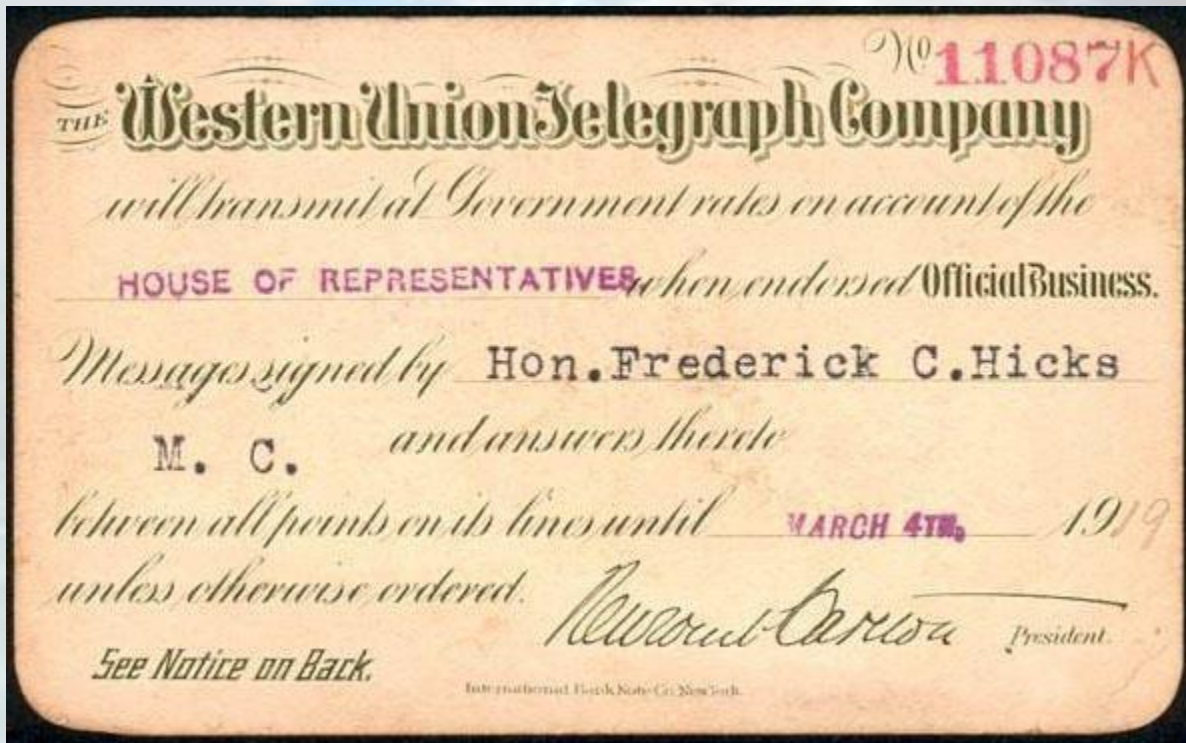 No 11087K
THE Western Union Telegraph Company
will transmit at Government rates on account of the
HOUSE OF REPRESENTATIVES when endorsed Official Business.
Messages signed by Hon.Frederick C.Hicks
M. C. and answers thereto
between all points on its lines until MARCH 4TH, 1919
unless otherwise ordered.
Newcomb Carlton President.
See Notice on Back.
International Bank Note Co. New York.